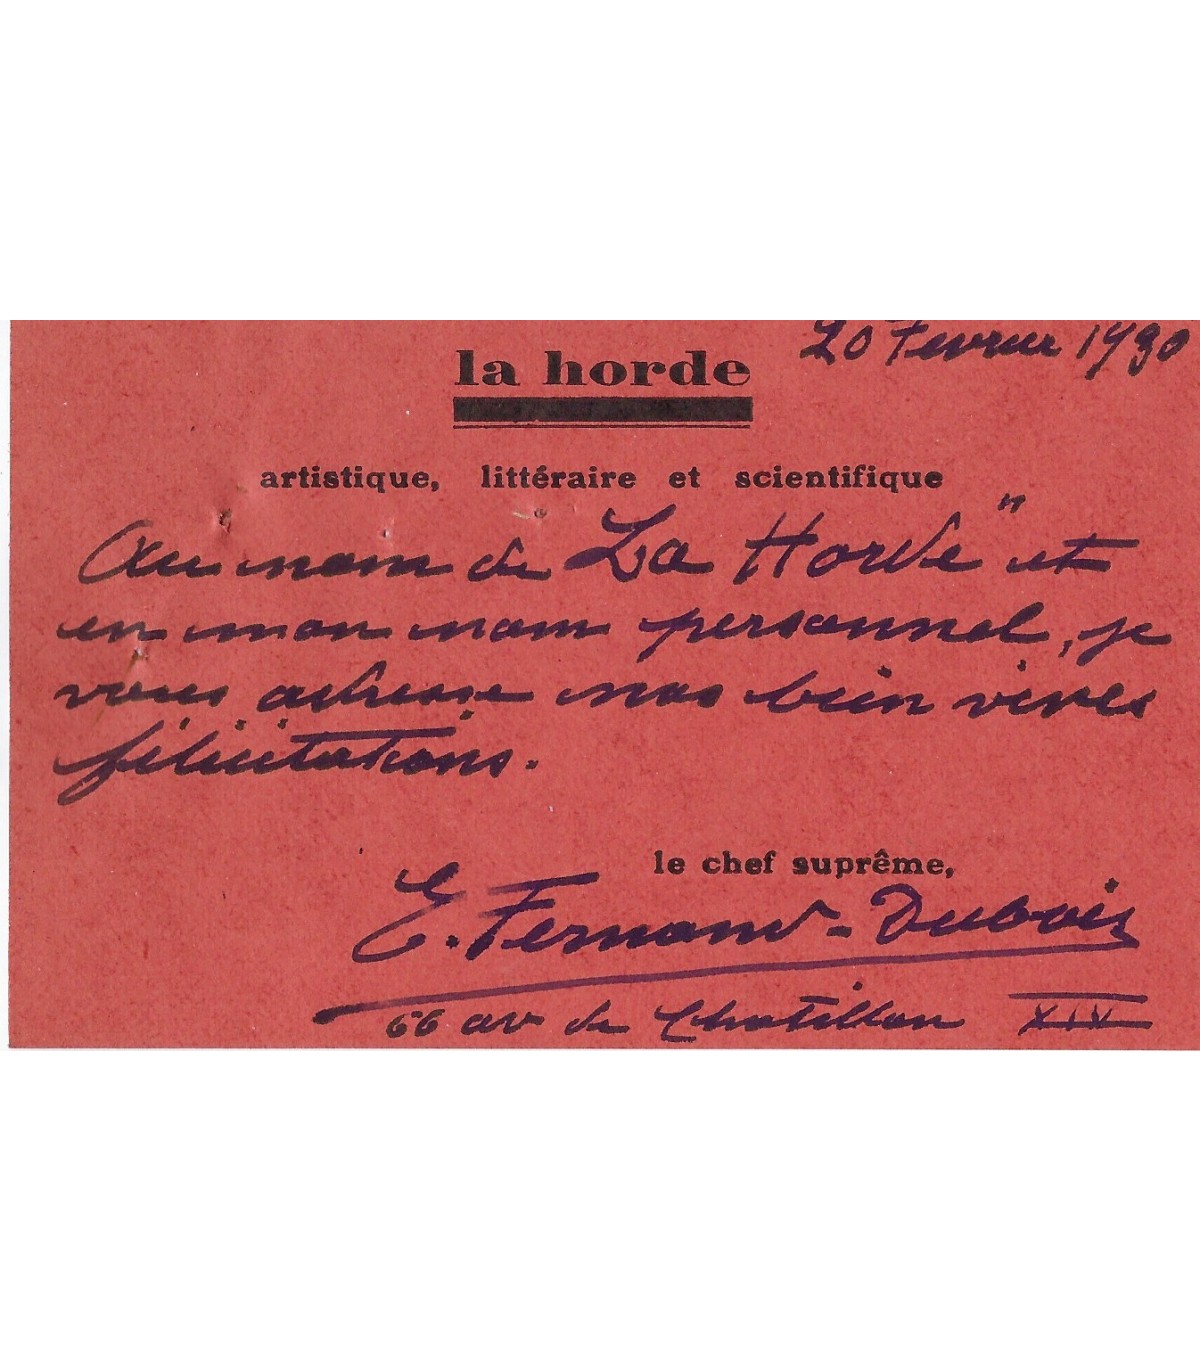 20 Fevrier 1930
la horde
artistique, littéraire et scientifique
Au nom de La Horde" et
en mon nom personnel, je
vous adresse nos bien vives
félicitations.
le chef suprême,
E. Fernand-Dubois
66 av de Chatillon XIV